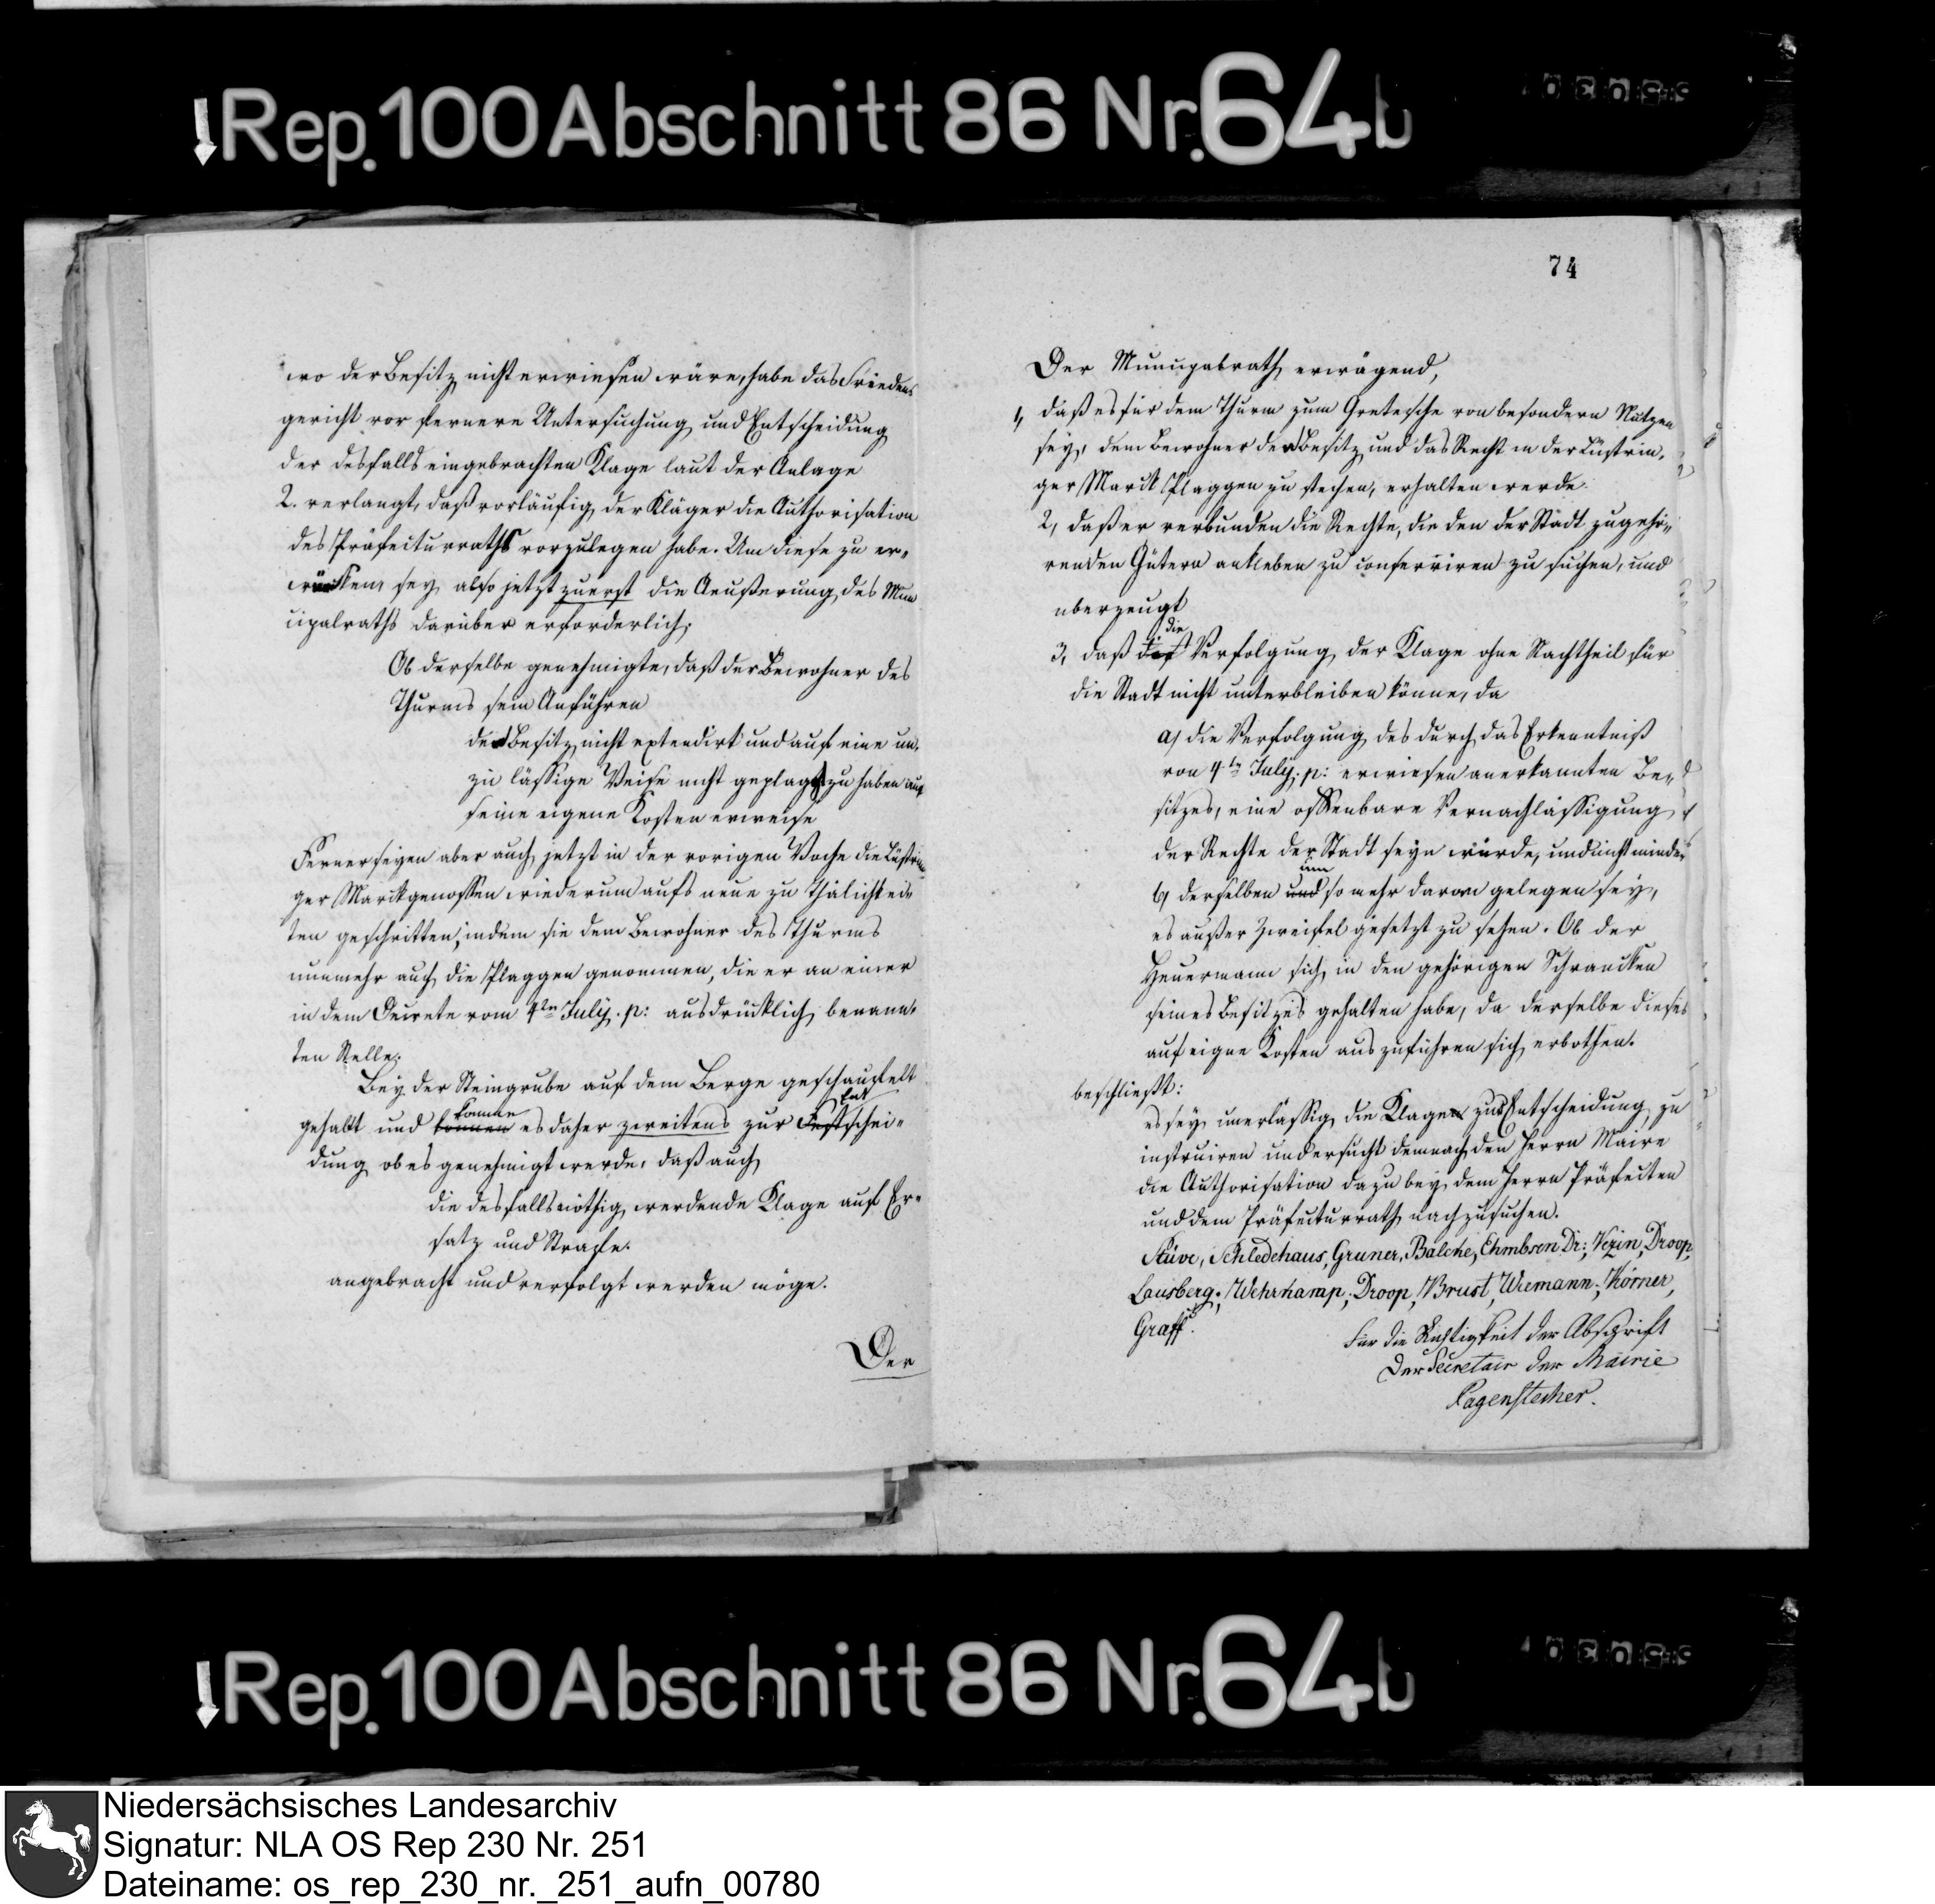 Rep. 100 Abschnitt 86 Nr. 64b
wo der Besitz nicht erwiesen wäre, habe das Friedens
gericht vor fernere Untersuchung und Entscheidung
der desfalls eingebrachten Klage laut der Anlage
2. verlangt, daß vorläufig der Kläger die Authorisation
des Präfecturraths vorzulegen habe. Um diese zu er„
würken, sey also jetzt zuerst die Aeußerung des Muni
cipalraths darüber erforderlich;
Ob derselbe genehmigte, daß der Bewohner des
Thurms sein Anführen
den Besitz nicht extendirt und auf eine un„
zu lässige Weise nicht geplagt zu haben auf
seine eigene Kosten erweise
Ferner seyen aber auch jetzt in der vorigen Woche die Lüstrin
ger Marckgenossen wiederum aufs neue zu Thälichkei„
ten geschritten, indem sie dem Bewohner des Thurms
nunmehr auch die Plaggen genommen, die er an einer
in dem Decrete vom 4ten July. p: ausdrücklich benann„
ten Stelle.
Bey der Steingrube auf dem Berge geschaufelt
gehabt und können komme es daher zweitens zur Festschei„ Ent
dung ob es genehmigt werde, daß auch
die desfalls nöthig werdende Klage auf Er„
satz und Strafe.
angebracht und verfolgt werden möge.
Der
74
Der Municipalrath erwägend,
1, daß es für dem Thurm zum Gretesche von besondern Nutzen
sey, dem Bewohner den Besitz und das Recht in der Lüstrin„
ger Marck Plaggen zu stechen, erhalten werde.
2, daß er verbunden die Rechte, die den der Stadt zugehö„
renden Gütern ankleben zu conserviren zu suchen, und
überzeugt
3, daß die Verfolgung der Klage ohne Nachtheil für
die Stadt nicht unterbleiben könne, da
a) die Verfolgung des durch das Erkenntniß
von 4ten July. p: erwiesen anerkannten Be„
sitzes, eine offenbare Vernachlässigung
der Rechte der Stadt seyn würde, und nicht minder
b) derselben und um so mehr daran gelegen sey,
es außer Zweifel gesetzt zu sehen. Ob der
Heuermann sich in den gehörigen Schrancken
seines Besitzes gehalten habe, da derselbe dieses
auf eigne Kosten auszuführen sich erbothen.
beschließt:
es sey unerlässig die Klage zur Entscheidung zu
instruiren und ersucht demnach den Herrn Maire
die Authorisation dazu bey dem Herrn Präfecten
und dem Präfecturrath nachzusuchen.
Stüve, Schledehaus, Gruner, Balcke, Ehmbsen Dr; Vezin, Droop,
Lausberg; Wehrkamp; Droop, Brust, Wiemann; Körner,
Graff.
Für die Richtigkeit der Abschrift
Der Secretair der Mairie
Pagenstecher.
Rep. 100 Abschnitt 86 Nr. 64b
Niedersächsisches Landesarchiv
Signatur: NLA OS Rep 230 Nr. 251
Dateiname: os_rep_230_nr._251_aufn_00780